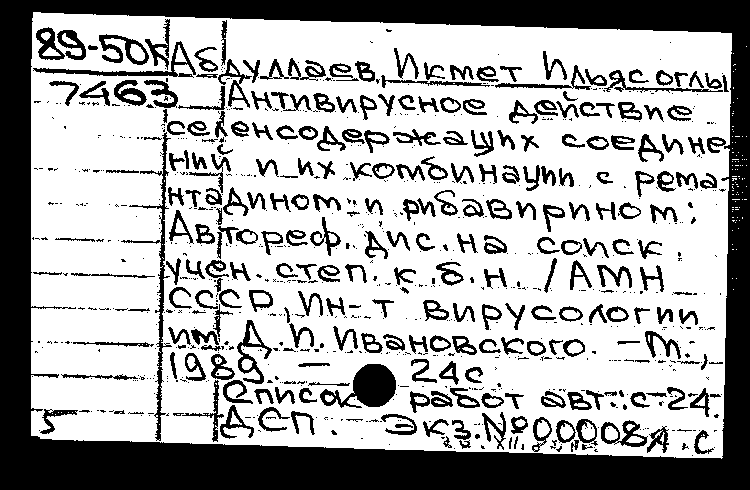 89-50К Абдуллаев, Икмет Ильясоглы
7463 Антивирусное действие
селенсодержащих соедине-
ний и их комбинации с рема-
нтадином и рибавирином:
Автореф. дис. на соиск.
учен. степ. к.б.н. / АМН
СССР, Ин-т вирусологии
им. Д.И. Ивановского. - М.,
1989. - 24с.
Список работ авт.: с.24.
5 ДСП. Экз. № 00008А.С